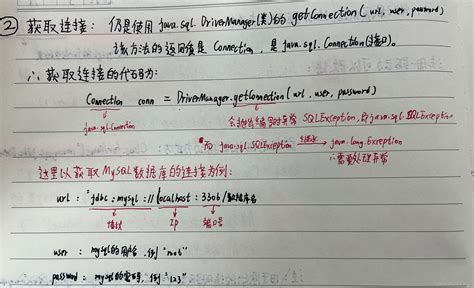 ② 获取连接: 仍是使用 java.sql.DriverManager(类)的 getConnection(url, user, password)
该方法的返回值是 Connection, 是 java.sql.Connection(接口)。
∴ 获取连接的代码为:
Connection conn = DriverManager.getConnection(url, user, password)
java.sql.Connection
会抛出编译时异常 SQLException, 即 java.sql.SQLException
而 java.sql.SQLException java.lang.Exception
∴ 需要处理异常
这里以获取MySQL数据库的连接为例:
url: "jdbc:mysql://localhost:3306/数据库名
协议 IP 端口号
user: mysql的用户名, 例 "root"
password: mysql的密码, 例 "123"